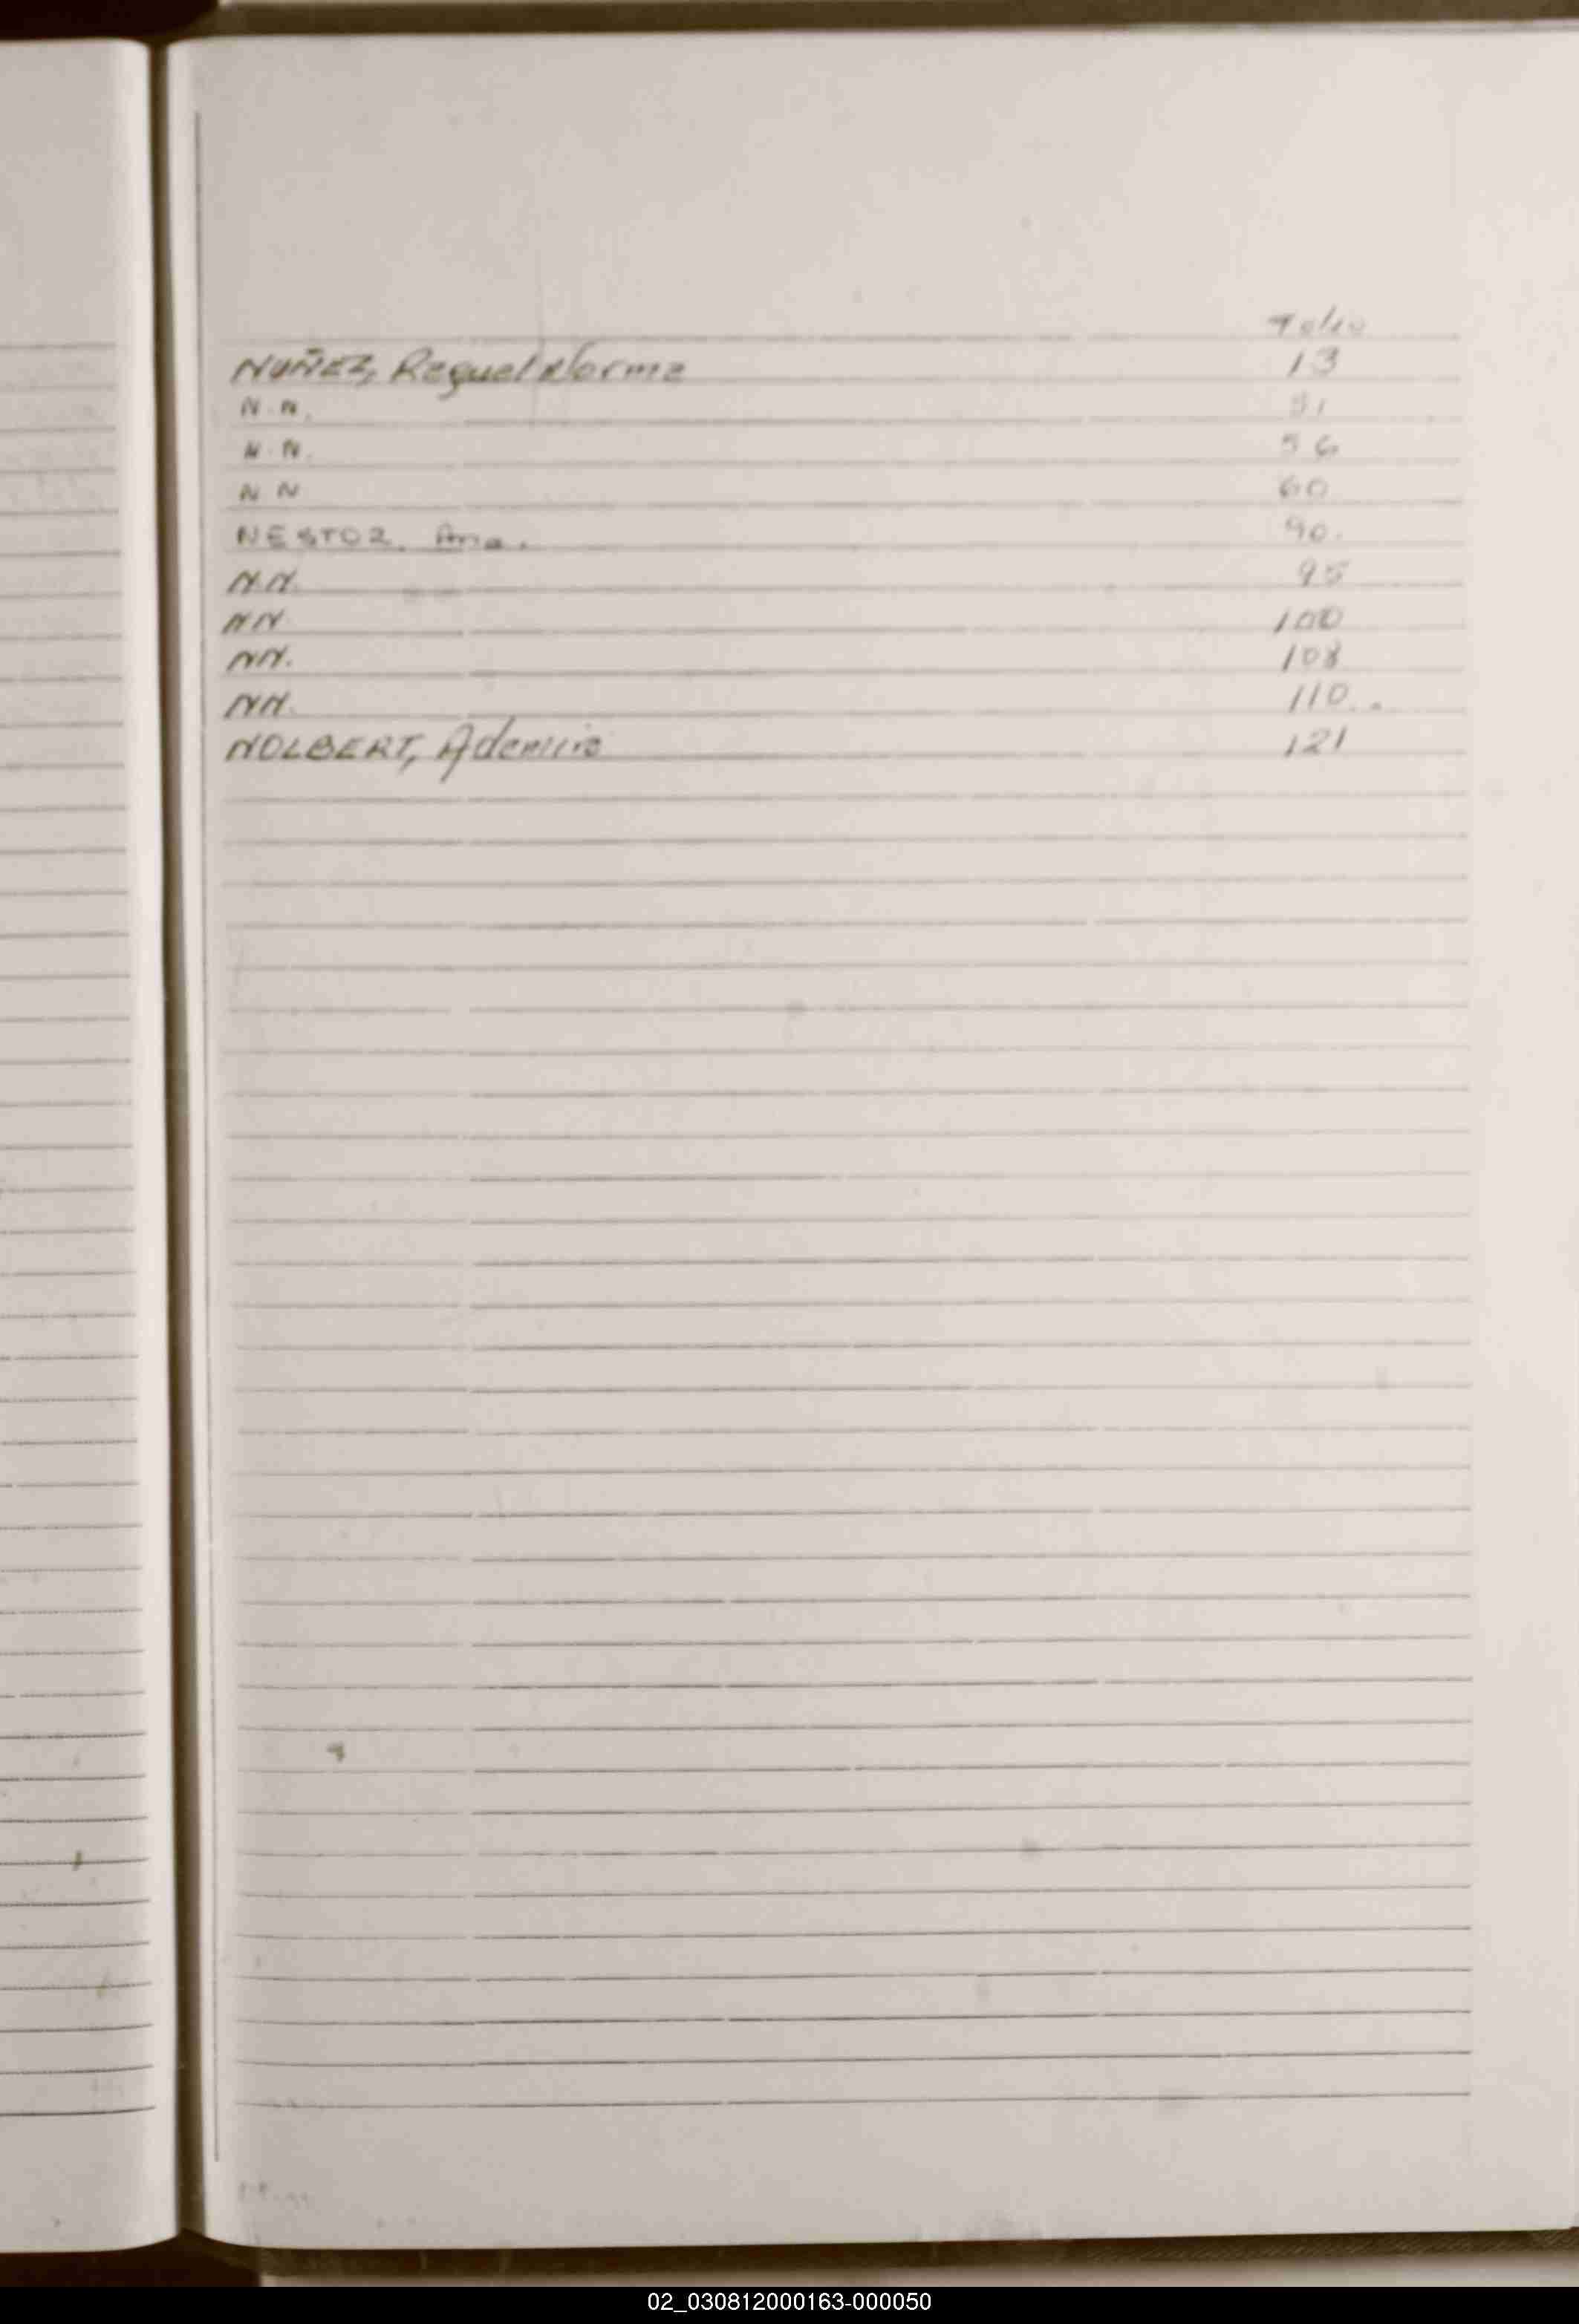 Folio
NUÑEZ, Raquel Norma 13
N.N. 51
N.N. 56
N N 60
NESTOR, Ana. 90.
N.N. 95
NN 100
NN. 108
NN. 110..
NOLBERT, 121
02_030812000163-000050